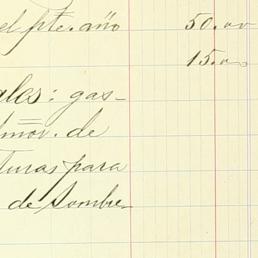 el pte. año 50.00
15.00
ales: gas-
mov. de
turas para
de Sombre-